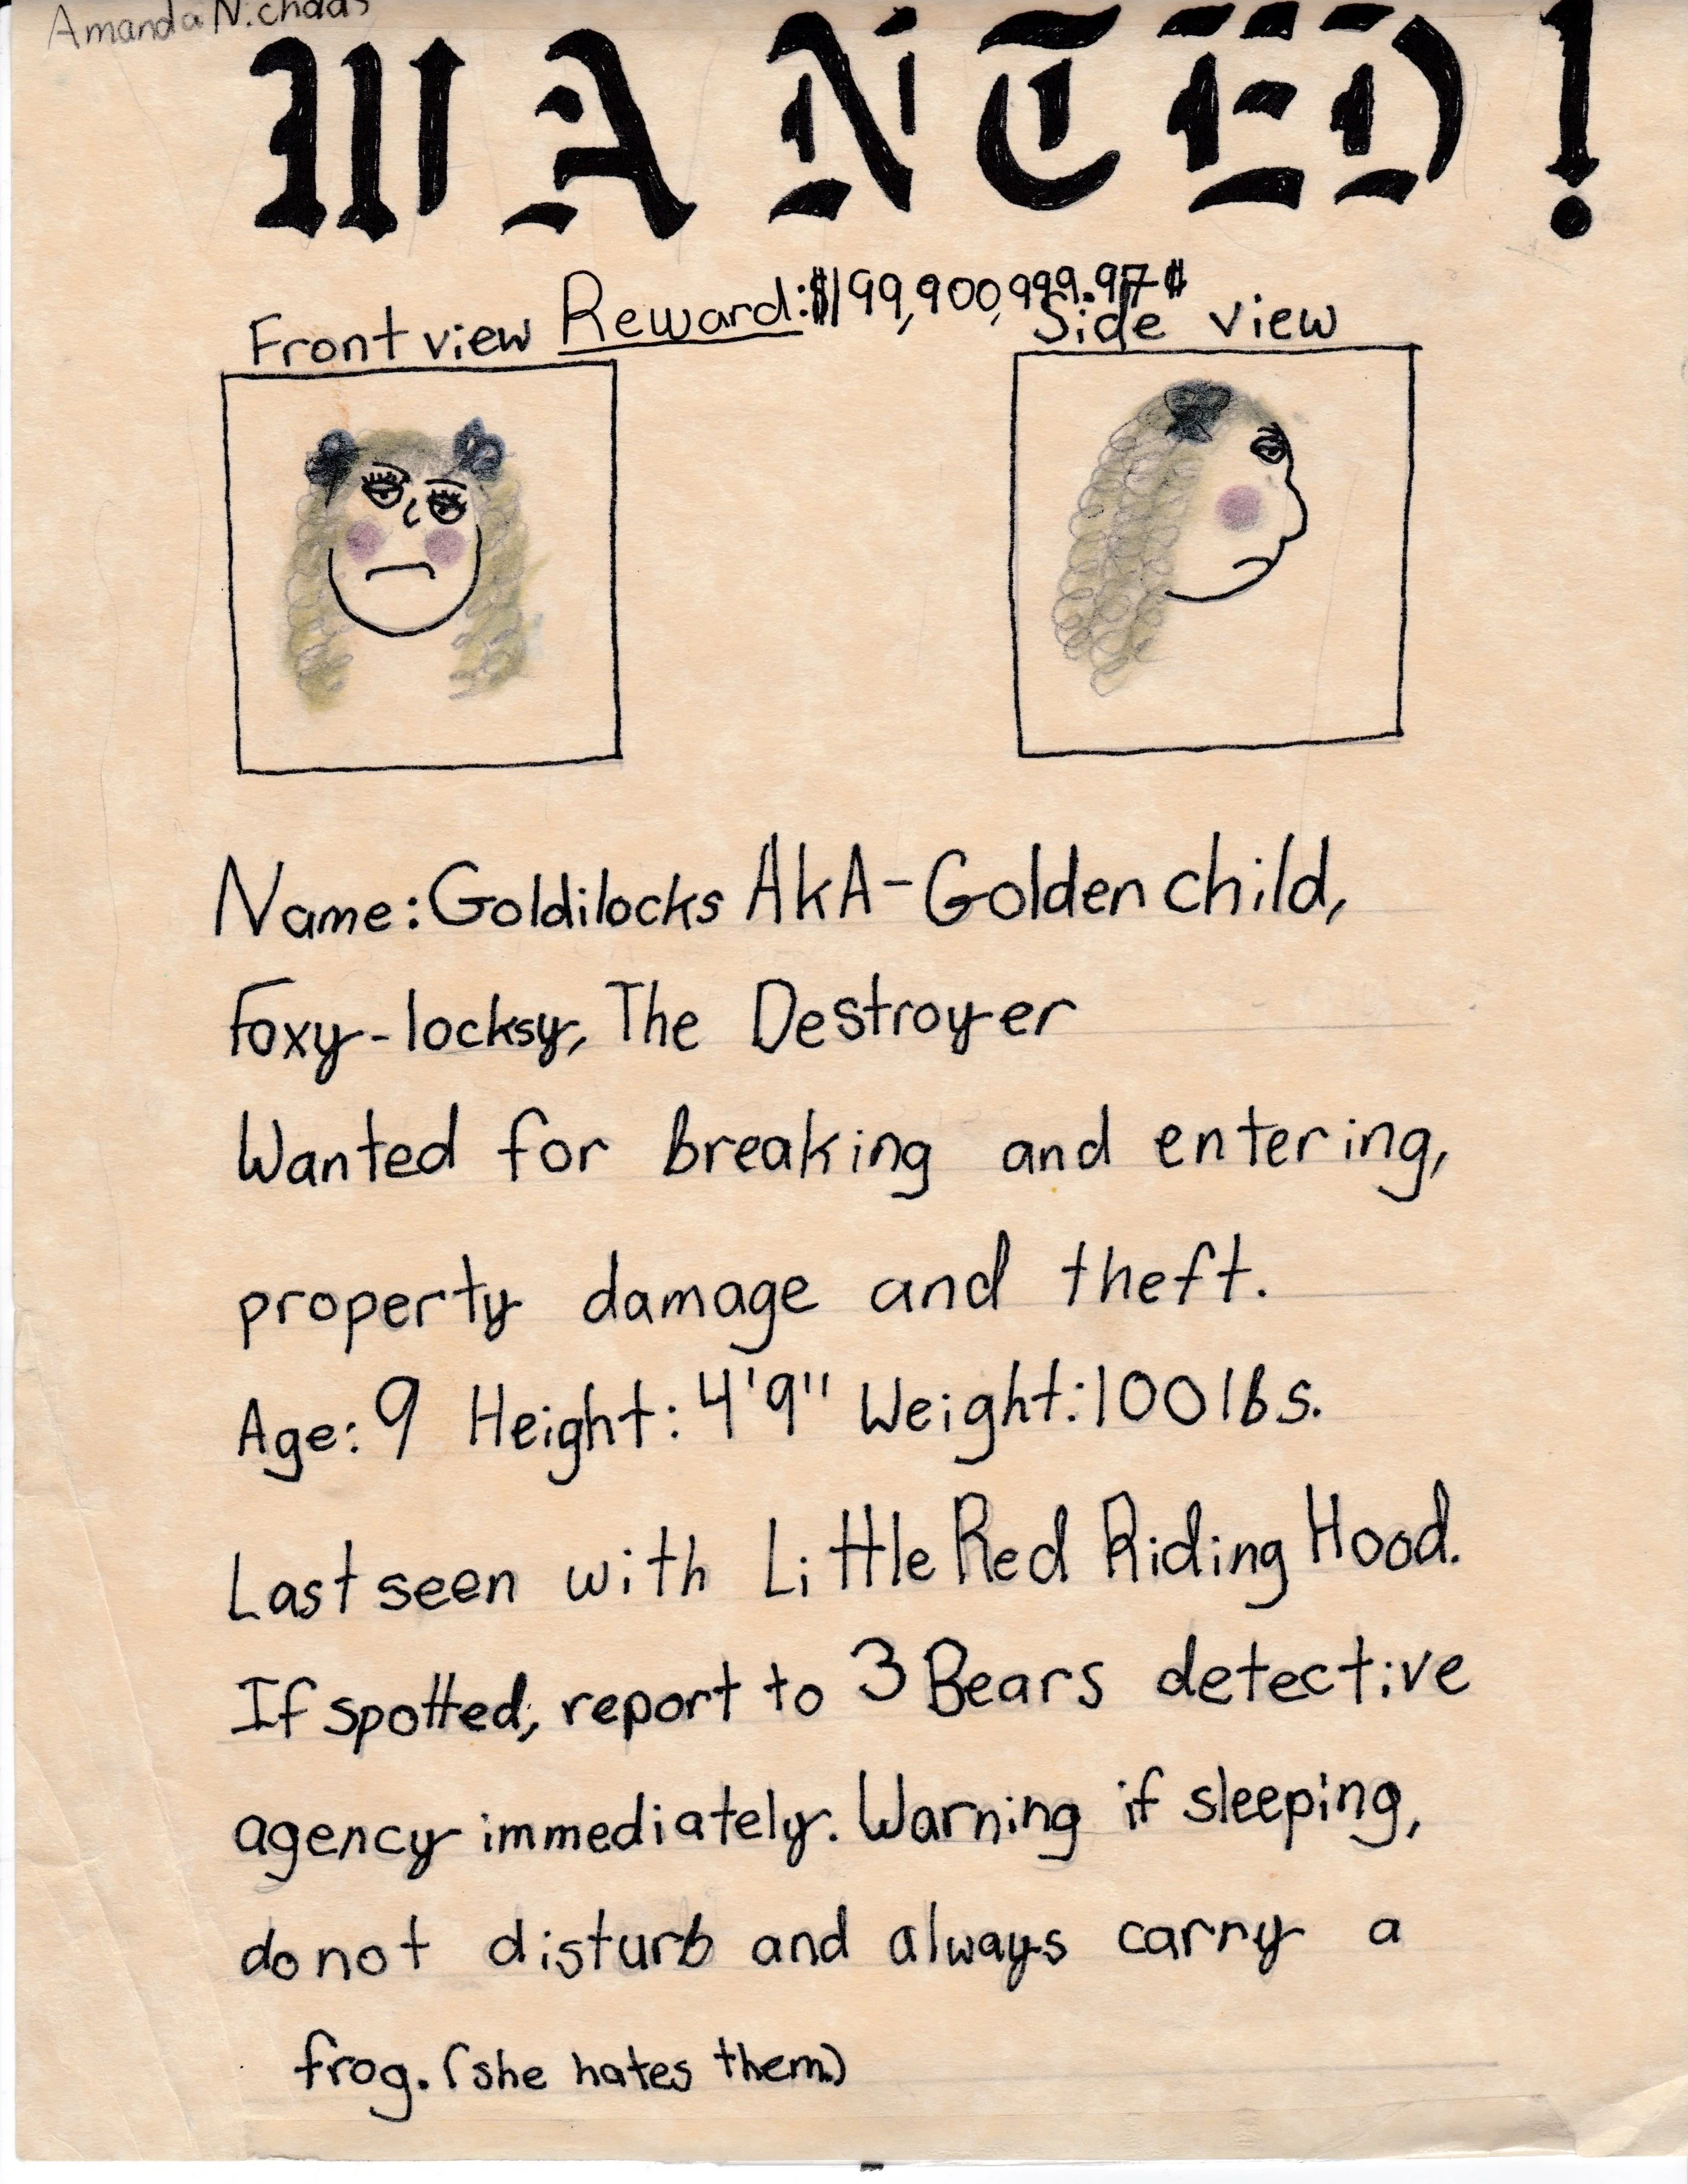 Amanda
WANTED!
Reward: $199,900,999.97¢
Front view
Side view
Name: Goldilocks AkA-Golden child,
Foxy-locksy, The Destroyer
Wanted for breaking and entering,
property damage and theft.
Age: 9 Height: 4'9" Weight: 100 lbs.
Last seen with Little Red Riding Hood.
If spotted, report to 3 Bears detective
agency immediately. Warning if sleeping,
do not disturb and always carry a
frog. (she hates them.)